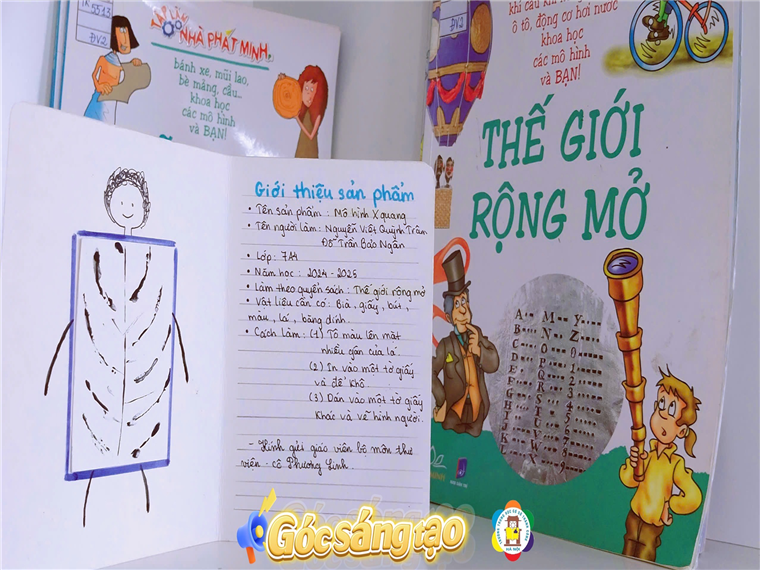 TK
5513
ĐV2
TẬP LÀM
NHÀ PHÁT MINH
bánh xe, mũi lao,
bè mảng, cầu...
khoa học
các mô hình
và BẠN!
Giới thiệu sản phẩm
• Tên sản phẩm : Mô hình X quang
• Tên người làm : Nguyễn Việt Quỳnh Trâm
Đỗ Trần Bảo Ngân
• Lớp : 7A4
• Năm học : 2024 - 2025
• Làm theo quyển sách : Thế giới rộng mở
• Vật liệu cần có : Bìa , giấy , bút ,
màu , lá , băng dính .
• Cách làm : (1) Tô màu lên mặt
nhiều gân của lá.
(2) In vào một tờ giấy
và để khô .
(3) Dán vào một tờ giấy
khác và vẽ hình người.
- Kính gửi giáo viên bộ môn thư
viện - cô Phương Linh .
ĐV2
ô tô, động cơ hơi nước
khoa học
các mô hình
và BẠN!
THẾ GIỚI
RỘNG MỞ
A M Y
B N Z
C O 0
D P 1
E Q 2
F R 3
G S 4
H T 5
I U 6
J V 7
K W 8
9
Góc sáng tạo
HÀ NỘI